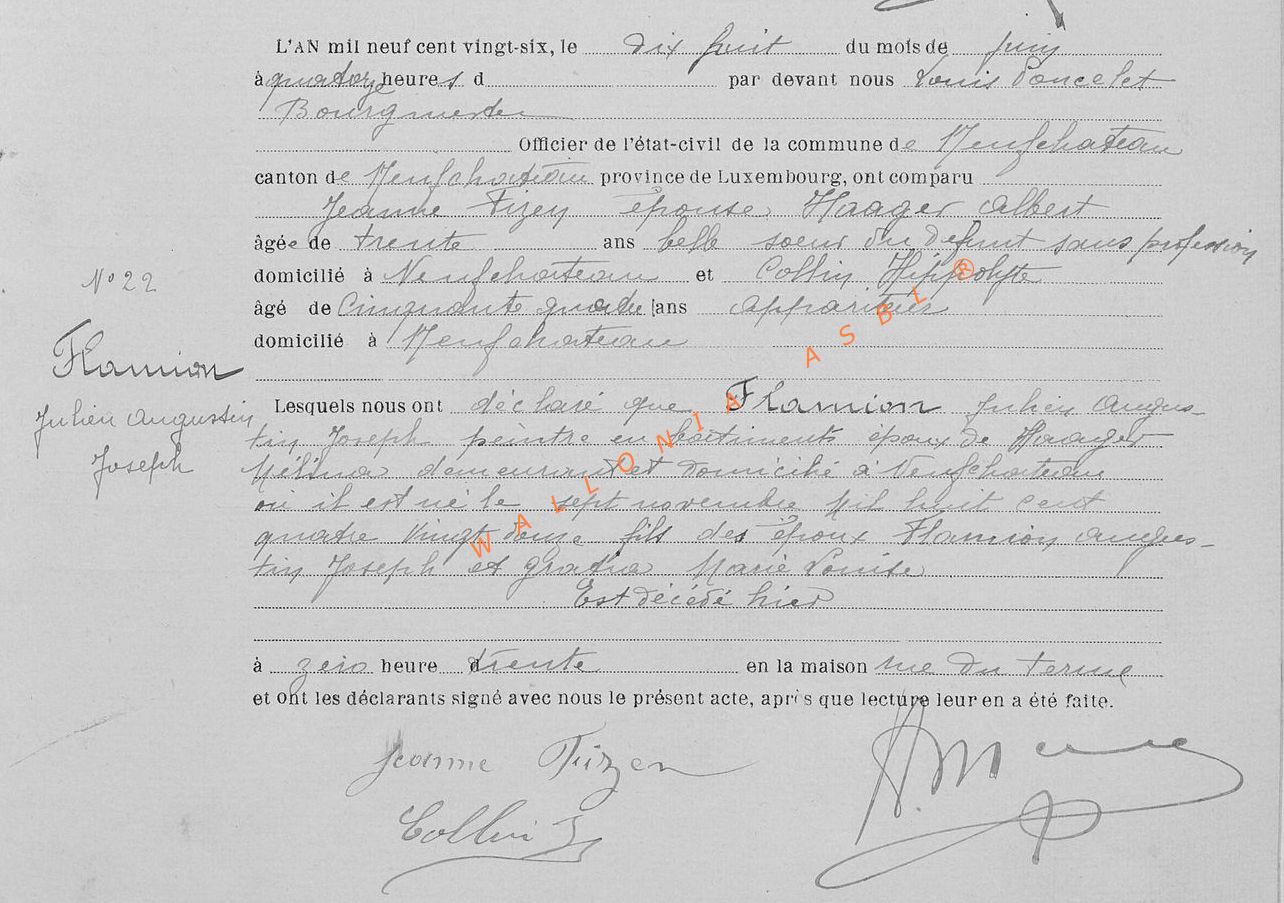 L'AN mil neuf cent vingt-six, le dix huit du mois de juin
à quatorze heures d par devant nous Louis Poncelet
Bourgmestre
Officier de l'état-civil de la commune de Neufchateau
canton de Neufchateau province de Luxembourg, ont comparu
Jeanne épouse Haager Albert
âgée de trente ans belle soeur du défunt sans profession
N° 22
domicilié à Neufchateau et Collin Hippolyte
âgé de Cinquante quatre ans appariteur
domicilié à Neufchateau
Flamion
Julien Augustin
Joseph
Lesquels nous ont déclaré que Flamion Julien Augus-
tin Joseph peintre en batiments époux de Haager
Mélina demeurant et domicilié à Neufchateau
où il est né le sept novembre Mil huit cent
quatre vingt douze fils des époux Flamion Augus-
tin Joseph et Gratia Marie Louise
Est décédé hier
à zéro heure trente en la maison rue du terme
et ont les déclarants signé avec nous le présent acte, après que lecture leur en a été faite.
Jeanne
Collin
WALLONIA ASBL ®